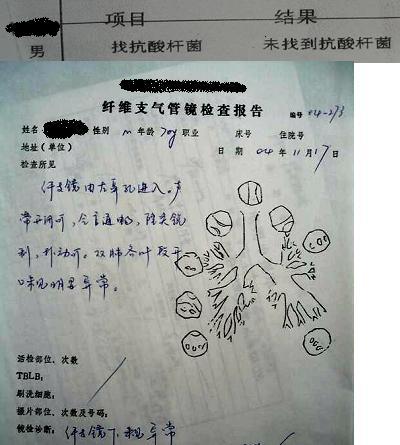 项目 结果
男 找抗酸杆菌 未找到抗酸杆菌
纤维支气管镜检查报告
编号 04-273
姓名 性别 m 年龄 70y 职业 床号 住院号
地址(单位) 日期 04年11月17日
检查所见
纤支镜由左鼻孔进入。声
门开闭可,会厌通畅,隆突锐
利,移动可。双肺各叶段开
口未见明显异常。
活检部位、次数
TBLB:
刷洗细胞:
摄片部位、次数及号码:
镜检诊断:纤支镜下未见异常